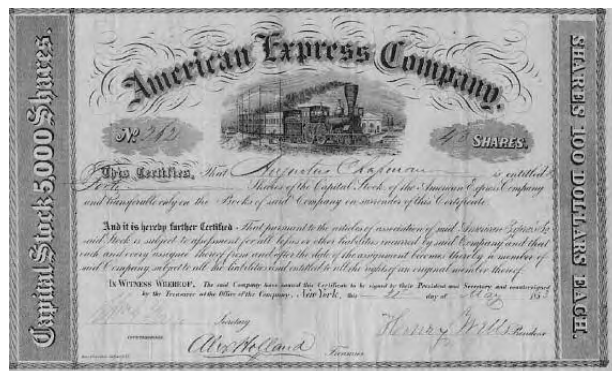 American Express Company.
No. 262
SHARES.
Capital Stock 5,000 Shares.
SHARES 100 DOLLARS EACH.
This Certifies, That Augustus Chapman is entitled to
Shares of the Capital Stock of the American Express Company
and transferable only on the Books of said Company on surrender of this Certificate.
And it is hereby further Certified - That pursuant to the articles of association of said American Express Co
said Stock is subject to assessment for all losses or other liabilities incurred by said Company and that
each and every assignee thereof from and after the date of the assignment becomes thereby a member of
said Company subject to all the liabilities and entitled to all the rights of an original member thereof.
IN WITNESS WHEREOF, The said Company have issued this Certificate to be signed by their President and Secretary and countersigned
by the Treasurer at the Office of the Company, New York, this day of May 185
Secretary
Henry Wells President
Alex Holland Treasurer